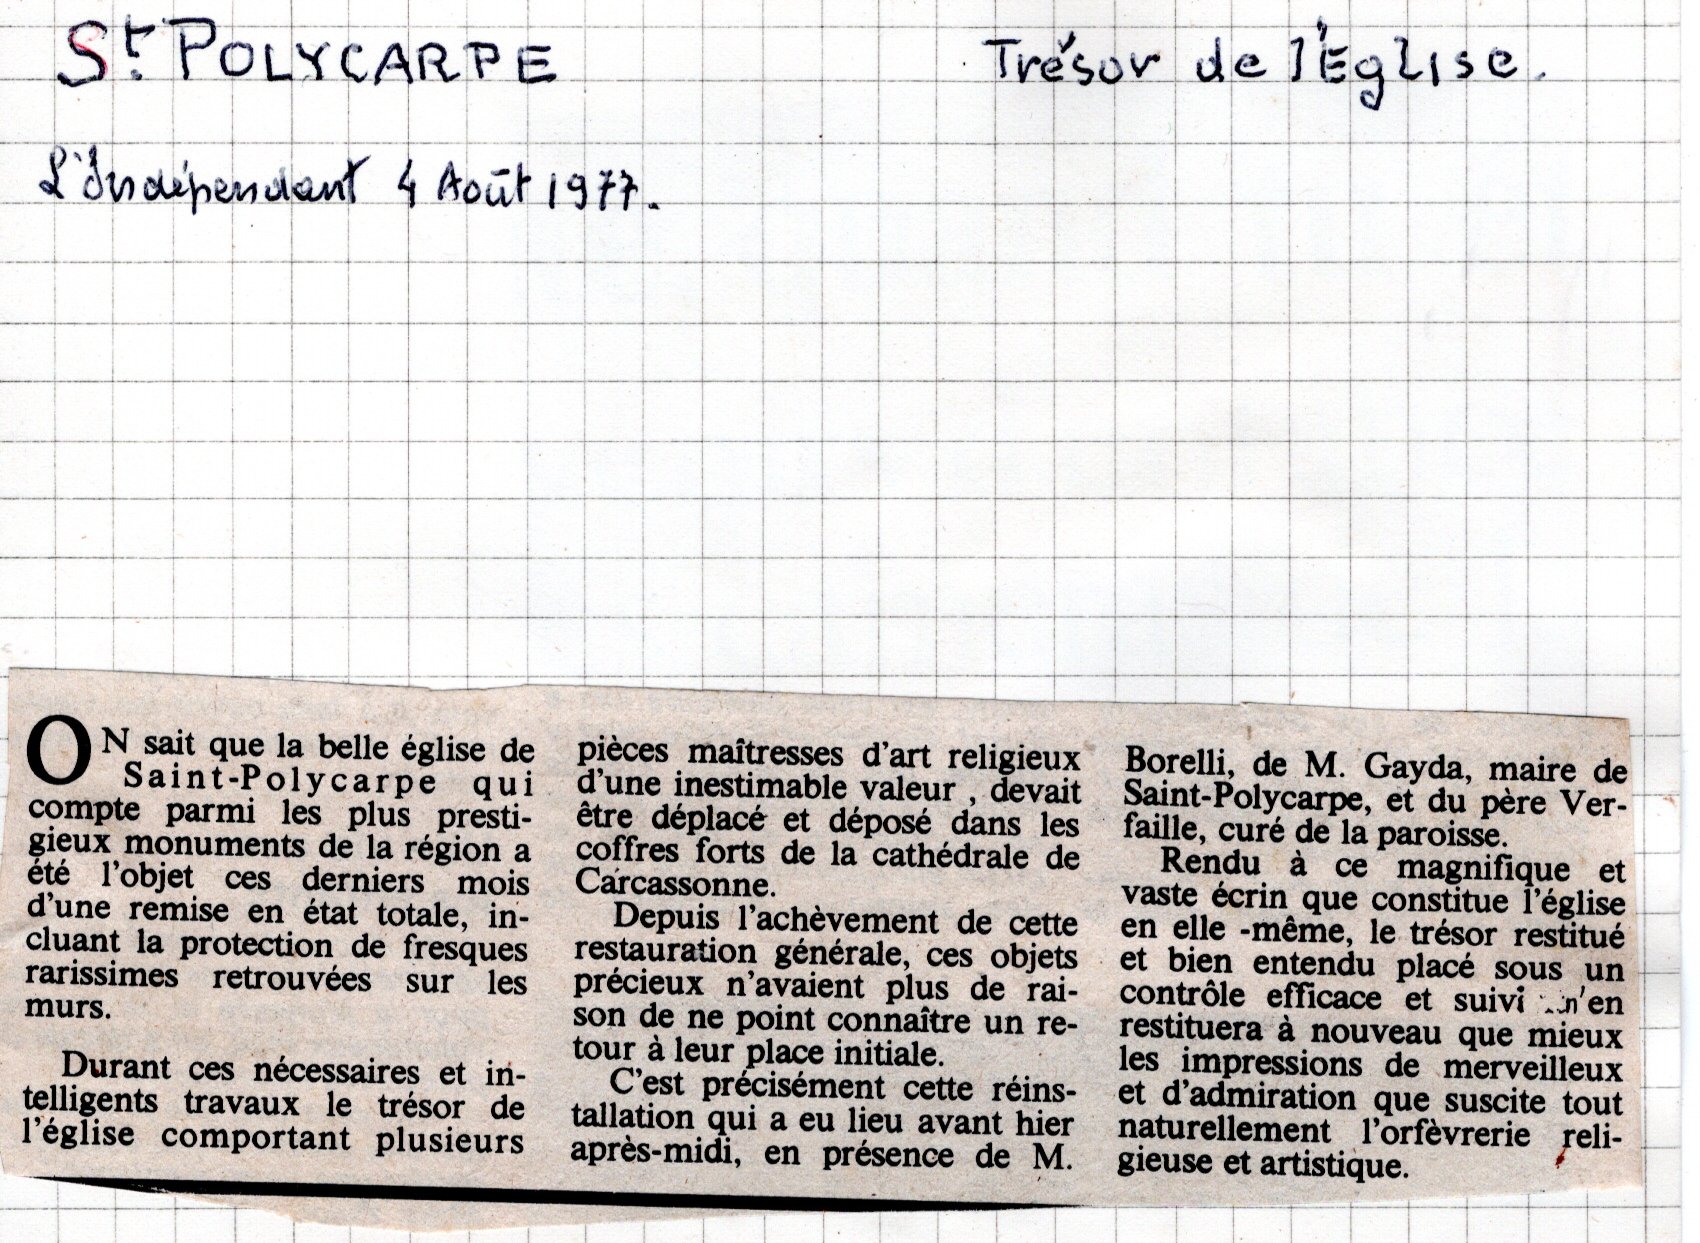 St. POLYCARPE
Trésor de l'Église.
L'Indépendant 4 Août 1977.
ON sait que la belle église de
Saint-Polycarpe qui
compte parmi les plus presti-
gieux monuments de la région a
été l'objet ces derniers mois
d'une remise en état totale, in-
cluant la protection de fresques
rarissimes retrouvées sur les
murs.
Durant ces nécessaires et in-
telligents travaux le trésor de
l'église comportant plusieurs
pièces maîtresses d'art religieux
d'une inestimable valeur , devait
être déplacé et déposé dans les
coffres forts de la cathédrale de
Carcassonne.
Depuis l'achèvement de cette
restauration générale, ces objets
précieux n'avaient plus de rai-
son de ne point connaître un re-
tour à leur place initiale.
C'est précisément cette réins-
tallation qui a eu lieu avant hier
après-midi, en présence de M.
Borelli, de M. Gayda, maire de
Saint-Polycarpe, et du père Ver-
faille, curé de la paroisse.
Rendu à ce magnifique et
vaste écrin que constitue l'église
en elle -même, le trésor restitué
et bien entendu placé sous un
contrôle efficace et suivi n'en
restituera à nouveau que mieux
les impressions de merveilleux
et d'admiration que suscite tout
naturellement l'orfèvrerie reli-
gieuse et artistique.